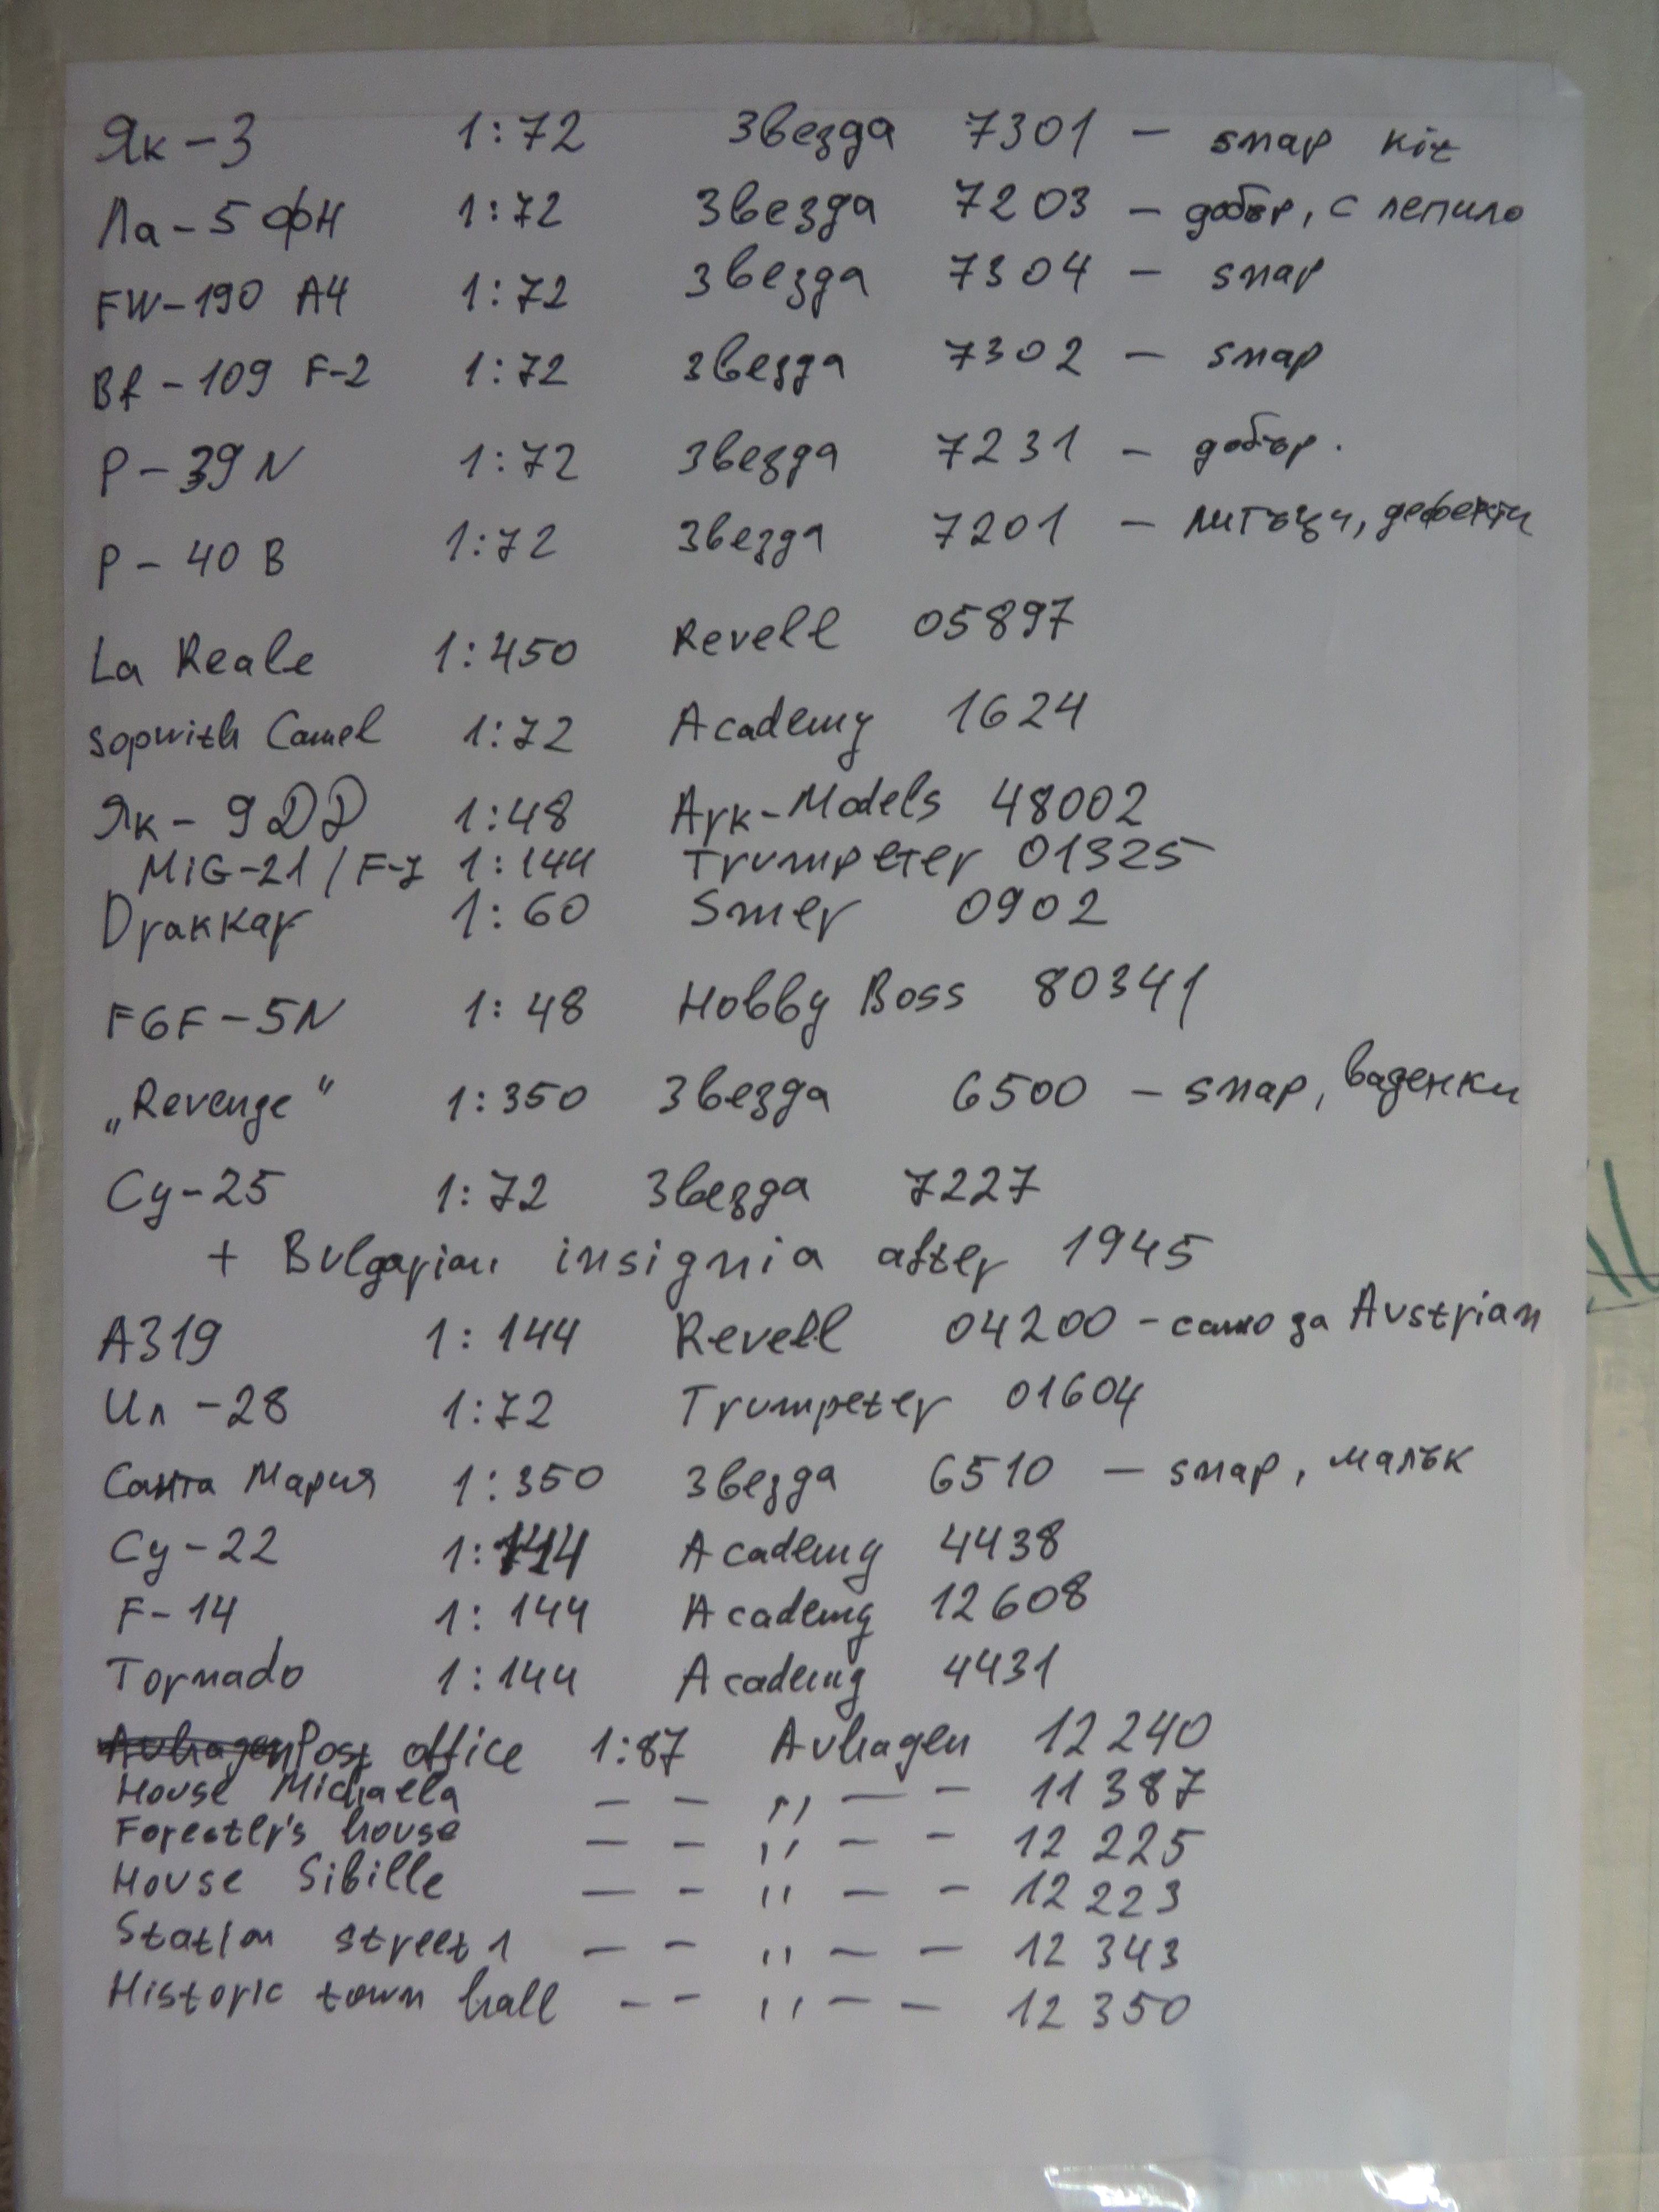 Як-3 1:72 Звезда 7301 – snap kit
Ла-5 фН 1:72 Звезда 7203 – добър, с лепило
FW-190 A4 1:72 Звезда 7304 – snap
Bf-109 F-2 1:72 Звезда 7302 – snap
P-39 N 1:72 Звезда 7231 – добър.
P-40 B 1:72 Звезда 7201 – дефекти
La Reale 1:450 Revell 05897
Sopwith Camel 1:72 Academy 1624
Як-9 DD 1:48 Ark-Models 48002
MiG-21/F-7 1:144 Trumpeter 01325
Drakkar 1:60 Smer 0902
F6F-5N 1:48 Hobby Boss 80341
„Revenge“ 1:350 Звезда 6500 – snap, ваденки
Су-25 1:72 Звезда 7227
+ Bulgarian insignia after 1945
A319 1:144 Revell 04200 – само за Austrian
Ил-28 1:72 Trumpeter 01604
Санта Мария 1:350 Звезда 6510 – snap, малък
Су-22 1:144 Academy 4438
F-14 1:144 Academy 12608
Tornado 1:144 Academy 4431
Post office 1:87 Auhagen 12240
House Michaela – – " – – 11387
Forester's house – – " – – 12 225
House Sibille – – " – – 12 223
Station street 1 – – " – – 12 343
Historic town hall – – " – – 12 350